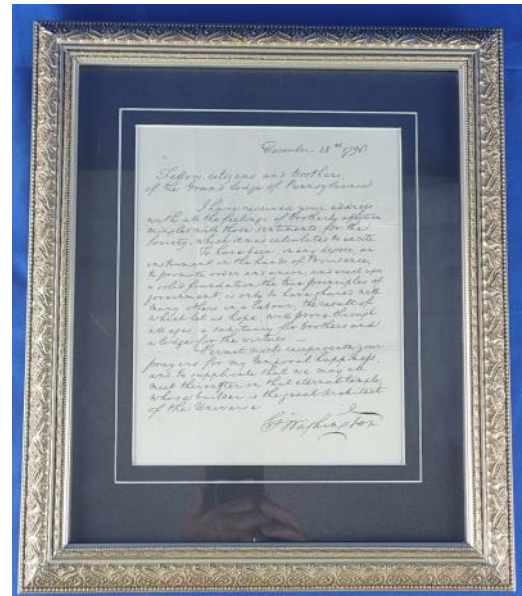 December 28th 1796
Fellow citizens and brothers,
of the Grand Lodge of Pennsylvania
I have received your address
with all the feelings of brotherly affection
mingled with those sentiments for the
Society, which it was calculated to excite
To have been, in any degree, an
instrument in the hands of Providence,
to promote order and union, and erect upon
a solid foundation the true principles of
government, is only to have shared with
many others in a labour, the result of
which let us hope, will prove through
all ages, a sanctuary for brothers and
a lodge for the virtues —
Permit me to reciprocate your
prayers for my temporal happiness,
and to supplicate that we may all
meet thereafter in that eternal temple,
whose builder is the great Architect
of the Universe
Go Washington